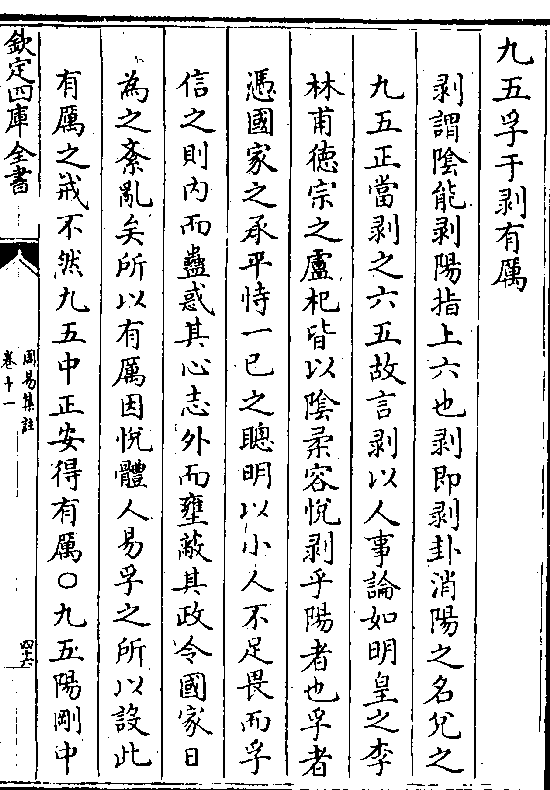 九五孚于剥有厲
剥謂陰能剥陽指上六也剥即剥卦消陽之名兊之
九五正當剥之六五故言剥以人事論如明皇之李
林甫德宗之盧杞皆以陰柔容悅剥乎陽者也孚者
憑國家之承平恃一己之聰明以小人不足畏而孚
信之則内而蠱惑其心志外而壅蔽其政令國家日
為之紊亂矣所以有厲因悅體人易孚之所以設此
有厲之戒不然九五中正安得有厲○九五陽剛中
欽定四庫全書
周易集註
卷十一
四十六